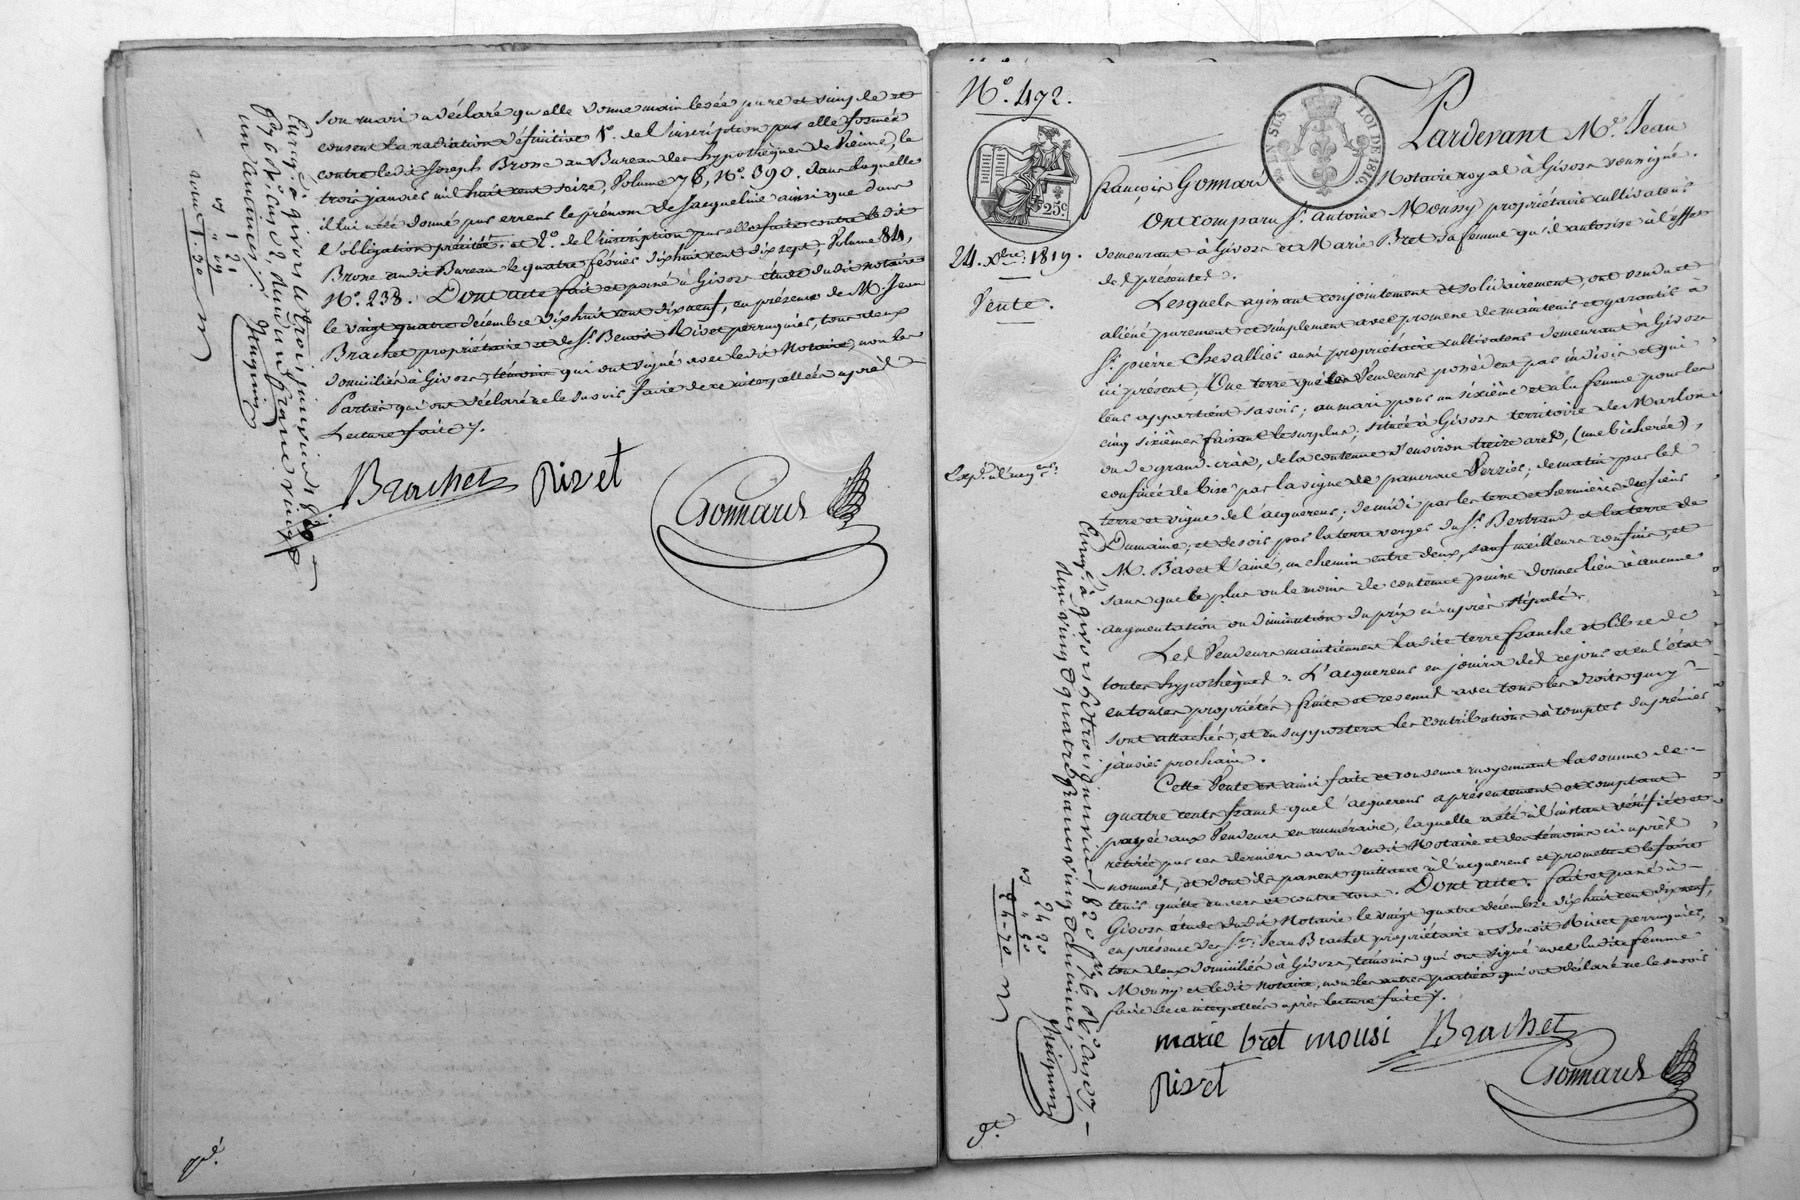 son mari a déclaré qu'elle donne main levée pure et simple et
consent la radiation définitive 1°. de l'inscription par elle formée
contre ledit Joseph Brosse au Bureau des hypothèques de Vienne, le
trois janvier mil huit cent seize, Volume 76, N°. 390. dans laquelle
il lui a été donné par erreur le prénom de Jacqueline ainsi que dans
l'obligation précitée. et 2°. de l'inscription par elle faite contre le dit
Brosse audit Bureau le quatre février dix huit cent dix sept, Volume 84,
N°. 238. Dont acte fait et passé à Givors étude dudit notaire
le vingt quatre décembre dix huit cent dix neuf, en présence de M. Jean
Brachet propriétaire et de Sr. Benoît Rivet perruquier, tous deux
domiciliés à Givors, témoins qui ont signé avec ledit Notaire, non les
Parties qui ont déclaré ne le savoir faire de ce interpellées après
Lecture faite.
Brachet Rivet
Gonnard
Enregé. à givors le trois janvier 1820
fo. 76 Ro. Case 2 Reçu un franc vingt
un centimes
1 21
" 09
1.30
N°. 472.
25c
LOI DE 1816.
24. Xbre. 1819.
Vente.
Pardevant Me. Jean
François Gonnard Notaire royal à Givors soussigné.
Ont comparu Sr. Antoine Moussy propriétaire cultivateur
demeurant à Givors et Marie Bret sa femme qu'il autorise à l'effet
des présentes.
Lesquels agissant conjointement et solidairement, ont vendu et
aliéné purement et simplement avec promesse de maintenir et garantir à
Sr. pierre Chevallier aussi propriétaire cultivateur demeurant à Givors
ici présent, Une terre que les Vendeurs possèdent par indivis et qui
leur appartient savoir; au mari pour un sixième et à la femme pour les
cinq sixièmes faisant le surplus, située à Givors territoire de Marlon
ou de grand-cràs, de la contenue d'environ treize ares, (une bicherée),
confinée de bise par la vigne de pancrace Verzier; de matin par les
terre et vigne de l'acquereur; de midi par les terre et hermières du sieur
Dumaine; et de soir par la terre verger du Sr. Bertrand et la terre de
M. Baset l'ainé, un chemin entre deux, sauf meilleurs confins, et
sans que le plus ou le moins de contenue puisse donner lieu à aucune
augmentation ou diminution du prix ci-après stipulé.
Les Vendeurs maintiennent ladite terre franche et libre de
toutes hypothèques. L'acquereur en jouira dès ce jour et en l'état
en toutes propriétés, fruits et revenus avec tous les droits qui y
sont attachés, et en supportera les contributions à compter du premier
janvier prochain.
Cette Vente est ainsi faite et consentie moyennant la somme de
quatre cents francs que l'acquereur a présentement et comptant
payée aux Vendeurs en numéraire, laquelle a été à l'instant vérifiée et
retirée par ces derniers au vu dudit Notaire et des témoins ci-après
nommés, et dont ils passent quittance à l'acquereur et promettent le faire
tenir quitte envers et contre tous. Dont acte. fait et passé à
Givors étude dudit Notaire le vingt quatre décembre dix huit cent dix neuf,
en présence des Srs. Jean Brachet propriétaire et Benoît Rivet perruquier,
tous deux domiciliés à Givors, témoins qui ont signé avec ladite femme
Moussy et ledit notaire, non les autres parties qui ont déclaré ne le savoir
faire de ce interpellées après lecture faite.
marie bret mousi Brachet
Rivet Gonnard
Enregé. à givors le trois janvier 1820 fo. 76 Ro. Case 7
Reçu vingt quatre francs vingt centimes
24 20